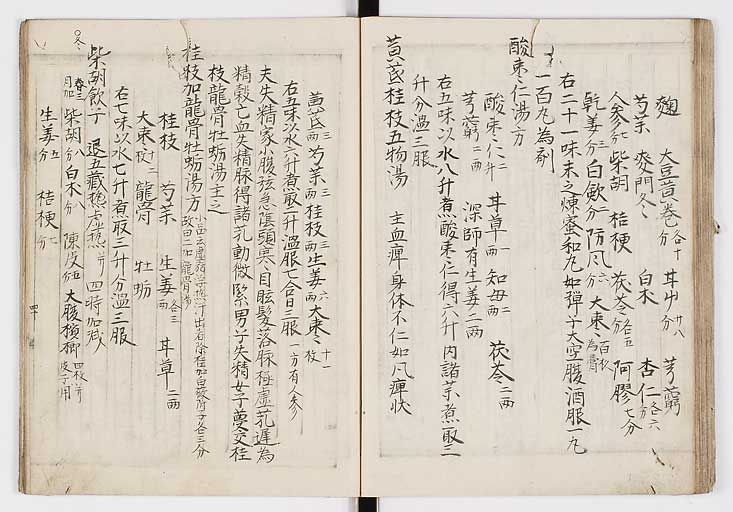 麹 大豆黄巻 各十分 甘艸 廿八分 芎藭
芍薬 麦門冬 白朮 杏仁 各六分
人参 七分 柴胡 桔梗 茯苓 各五分 阿膠 七分
乾姜 三分 白斂 二分 防風 六分 大棗 百枚為膏
右二十一味末之煉蜜和丸如弾子大空腹酒服一丸
一百丸為剤
酸棗仁湯方
酸棗仁 二升 甘草 一両 知母 二両 茯苓 二両
芎藭 二両 深師有生姜二両
右五味以水八升煮酸棗仁得六升内諸薬煮取三
升分温三服
黄芪桂枝五物湯 主血痺身体不仁如風痺状
黄芪 三両 芍薬 三両 桂枝 三両 生姜 六両 大棗 十一枚
右五味以水六升煮取二升温服七合日三服 一方有人参
夫失精家小腹弦急陰頭寒目眩髪落脉極虚芤遅為
精穀亡血失精脉得諸芤動微緊男子失精女子夢交桂
枝龍骨牡蛎湯主之
桂枝加龍骨牡蛎湯方 小品云虚弱浮熱汗出者除桂加白薇附子各三分故曰二加龍骨湯
桂枝 芍薬 生姜 各三両 甘草 二両
大棗 十二枚 龍骨 牡蛎
右七味以水七升煮取三升分温三服
柴胡飲子 退五蔵 虚熱 四時加減
柴胡 八分 白朮 八分 陳皮 五分 大腹檳榔 四枚 皮子用
生姜 五分 桔梗 七分